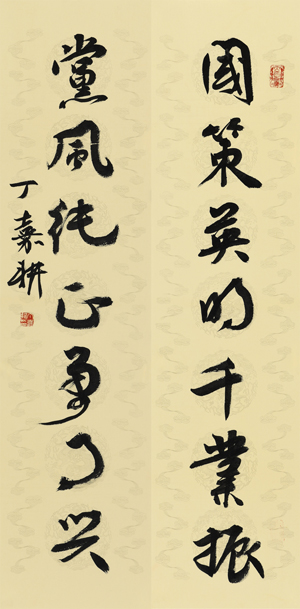 國策英明千業振
黨風純正萬事兴
丁嘉耕